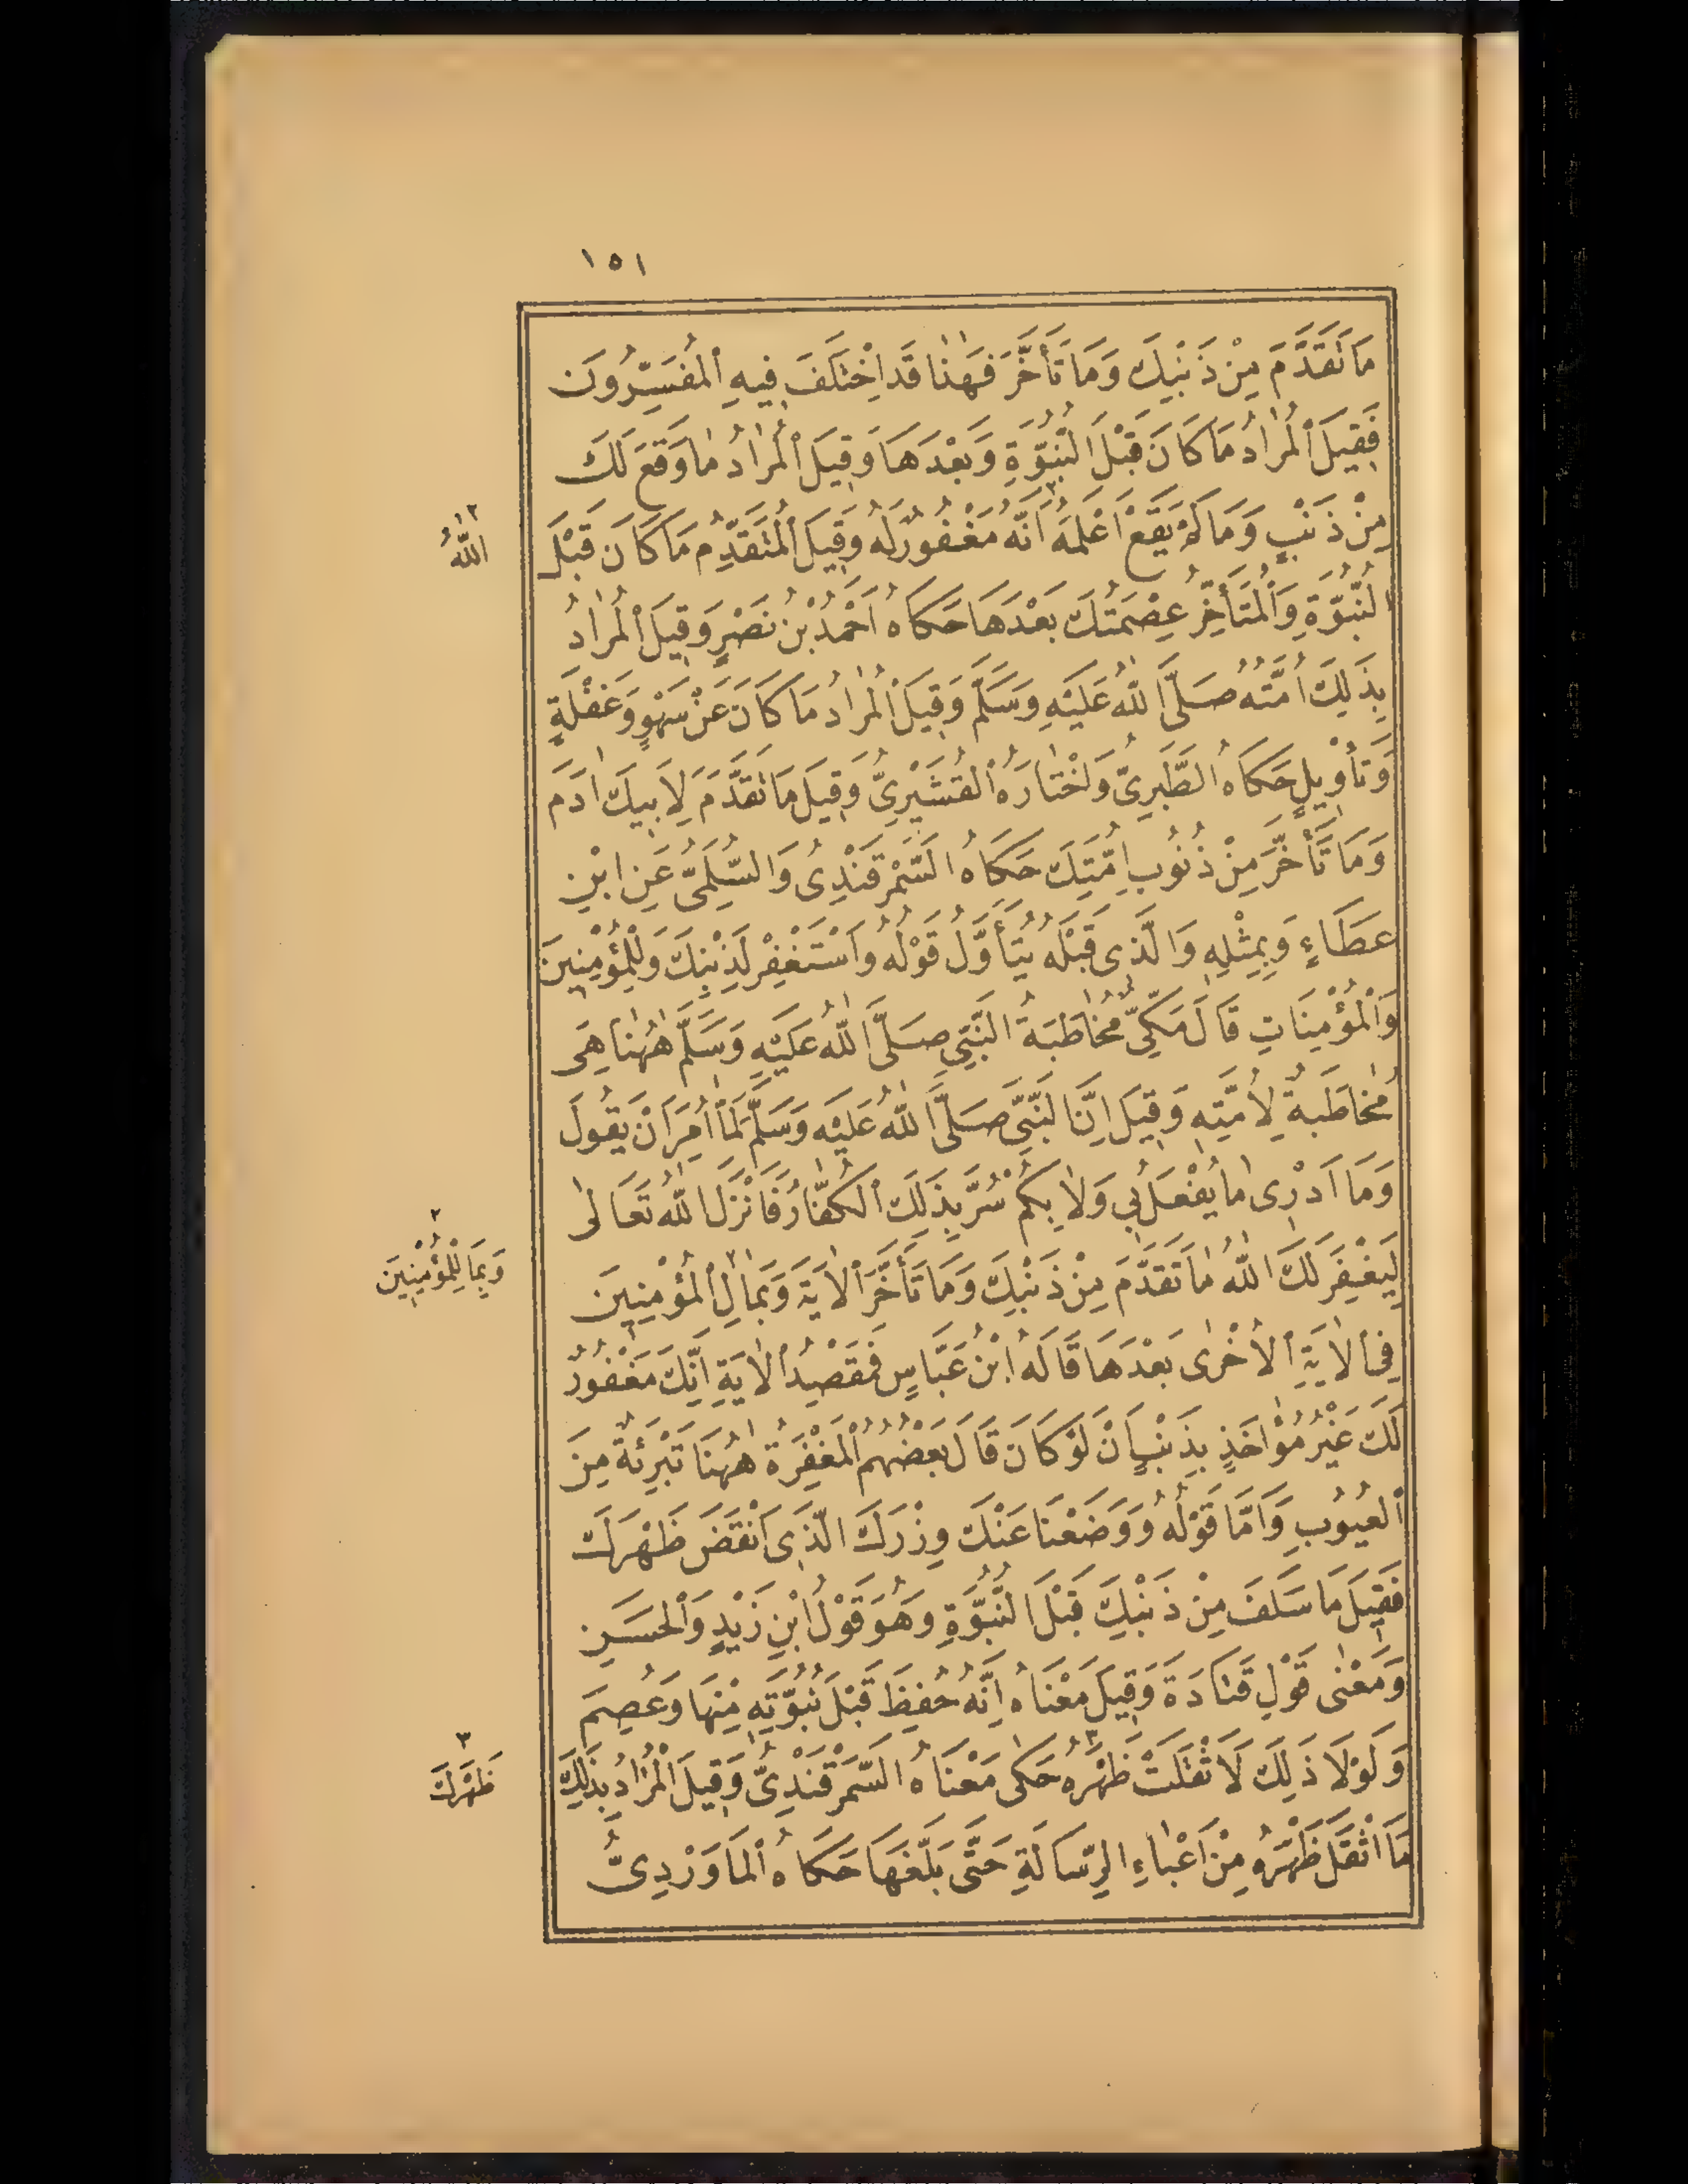 ١٥١
مَا تَقَدَّمَ مِنْ ذَنْبِكَ وَمَا تَأَخَّرَ فَهٰذَا قَدِ اخْتَلَفَ فِيهِ الْمُفَسِّرُونَ
فَقِيلَ الْمُرَادُ مَا كَانَ قَبْلَ النُّبُوَّةِ وَبَعْدَهَا وَقِيلَ الْمُرَادُ مَا وَقَعَ لَكَ
مِنْ ذَنْبٍ وَمَا لَمْ يَقَعْ اَعْلَمَهُ ٢ اَنَّهُ مَغْفُورٌ لَهُ وَقِيلَ الْمُتَقَدِّمُ مَا كَانَ قَبْلَ
٢ اللّٰهُ
النُّبُوَّةِ وَالْمُتَأَخِّرُ عِصْمَتُكَ بَعْدَهَا حَكَاهُ اَحْمَدُ بْنُ نَصْرٍ وَقِيلَ الْمُرَادُ
بِذٰلِكَ اُمَّتُهُ صَلَّى اللّٰهُ عَلَيْهِ وَسَلَّمَ وَقِيلَ الْمُرَادُ مَا كَانَ عَنْ سَهْوٍ وَغَفْلَةٍ
وَتَأْوِيلٍ حَكَاهُ الطَّبَرِىُّ وَاخْتَارَهُ الْقُشَيْرِىُّ وَقِيلَ مَا تَقَدَّمَ لِاَبِيكَ اٰدَمَ
وَمَا تَأَخَّرَ مِنْ ذُنُوبِ اُمَّتِكَ حَكَاهُ السَّمَرْقَنْدِىُّ وَالسُّلَمِىُّ عَنِ ابْنِ
عَطَاءٍ وَبِمِثْلِهِ وَالَّذِى قَبْلَهُ يُتَأَوَّلُ قَوْلُهُ وَاسْتَغْفِرْ لِذَنْبِكَ وَلِلْمُؤْمِنِينَ
وَالْمُؤْمِنَاتِ قَالَ مَكِّىٌّ مُخَاطَبَةُ النَّبِىِّ صَلَّى اللّٰهُ عَلَيْهِ وَسَلَّمَ هٰهُنَا هِىَ
مُخَاطَبَةٌ لِاُمَّتِهِ وَقِيلَ اِنَّ النَّبِىَّ صَلَّى اللّٰهُ عَلَيْهِ وَسَلَّمَ لَمَّا اُمِرَ اَنْ يَقُولَ
وَمَا اَدْرِى مَا يُفْعَلُ بِى وَلَا بِكُمْ سُرَّ بِذٰلِكَ الْكُفَّارُ فَاَنْزَلَ اللّٰهُ تَعَالٰى
لِيَغْفِرَ لَكَ اللّٰهُ مَا تَقَدَّمَ مِنْ ذَنْبِكَ وَمَا تَأَخَّرَ الْاٰيَةَ وَبِمَالِ ٢ الْمُؤْمِنِينَ
٢ وَبِمَا لِلْمُؤْمِنِينَ
فِى الْاٰيَةِ الْاُخْرٰى بَعْدَهَا قَالَهُ ابْنُ عَبَّاسٍ فَمَقْصِدُ الْاٰيَةِ اِنَّكَ مَغْفُورٌ
لَكَ غَيْرُ مُؤَاخَذٍ بِذَنْبٍ اَنْ لَوْ كَانَ قَالَ بَعْضُهُمُ الْمَغْفِرَةُ هٰهُنَا تَبْرِئَةٌ مِنَ
الْعُيُوبِ وَاَمَّا قَوْلُهُ وَوَضَعْنَا عَنْكَ وِزْرَكَ الَّذِى اَنْقَضَ ظَهْرَكَ
فَقِيلَ مَا سَلَفَ مِنْ ذَنْبِكَ قَبْلَ النُّبُوَّةِ وَهُوَ قَوْلُ ابْنِ زَيْدٍ وَالْحَسَنِ
وَمَعْنٰى قَوْلِ قَتَادَةَ وَقِيلَ مَعْنَاهُ اِنَّهُ حُفِظَ قَبْلَ نُبُوَّتِهِ مِنْهَا وَعُصِمَ
وَلَوْلَا ذٰلِكَ لَاَثْقَلَتْ ظَهْرَهُ ٣ حَكٰى مَعْنَاهُ السَّمَرْقَنْدِىُّ وَقِيلَ الْمُرَادُ بِذٰلِكَ
٣ ظَهْرَكَ
مَا اَثْقَلَ ظَهْرَهُ مِنْ اَعْبَاءِ الرِّسَالَةِ حَتّٰى بَلَّغَهَا حَكَاهُ الْمَاوَرْدِىُّ